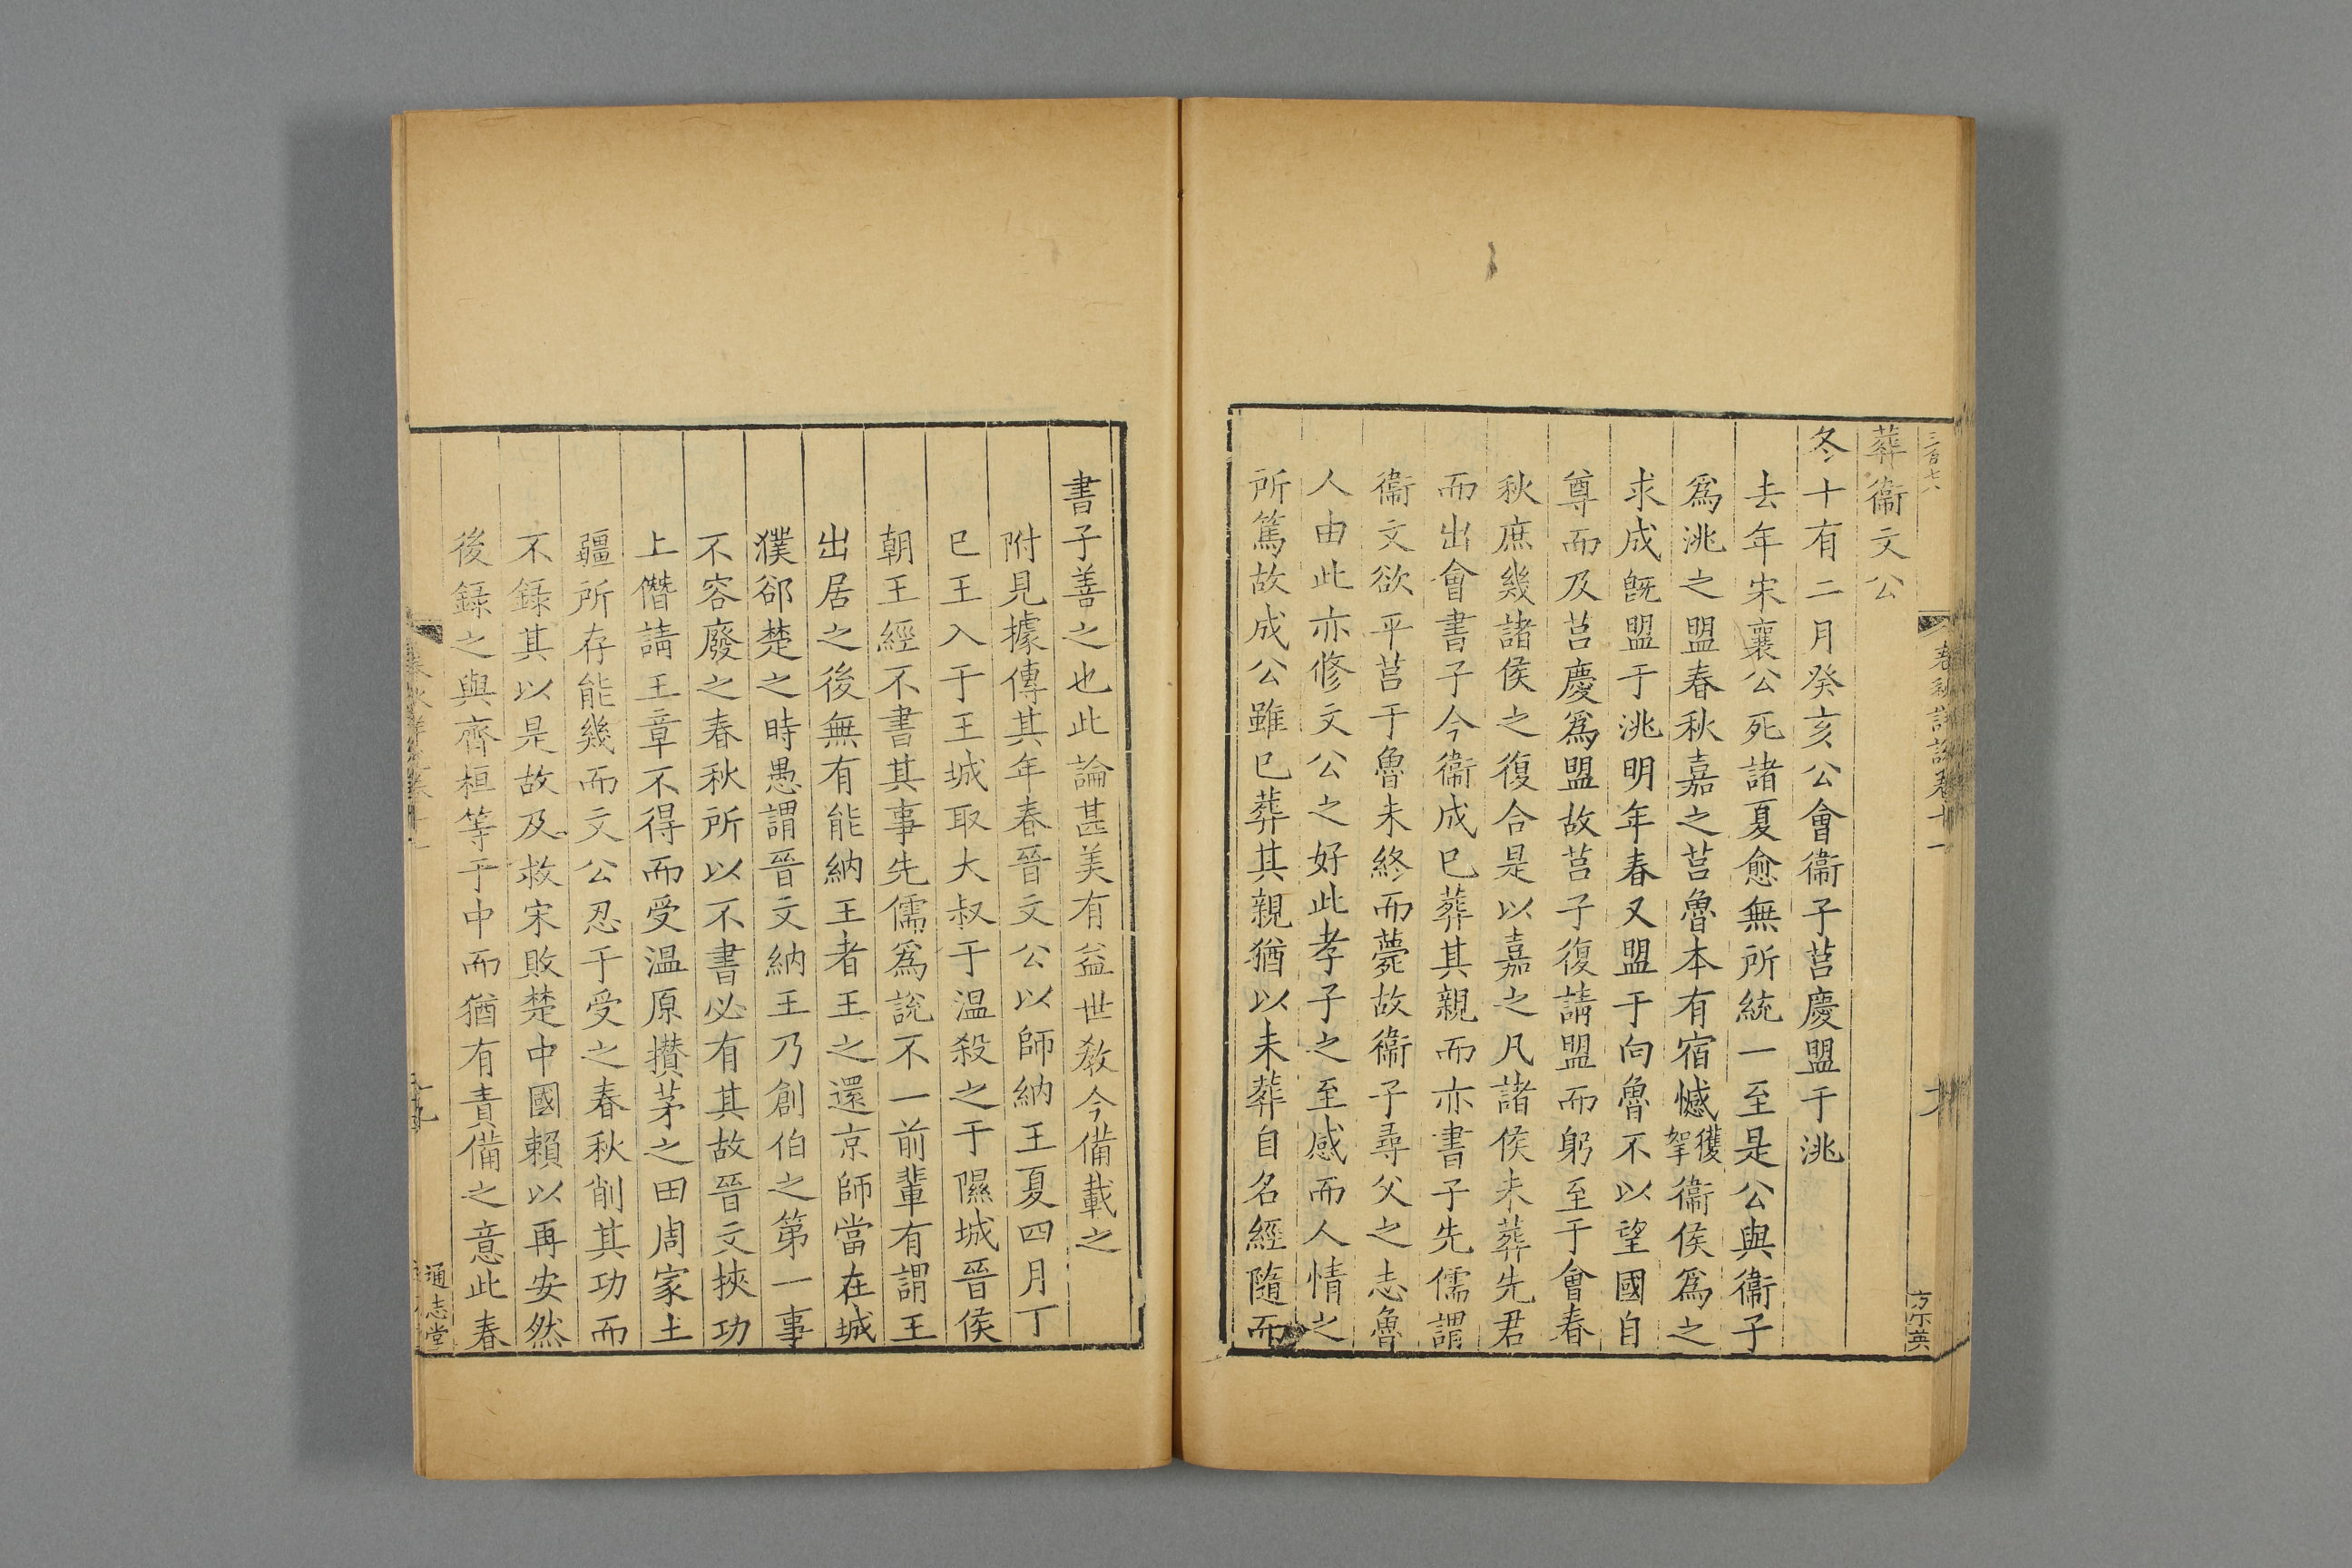 三百七八
春秋詳說卷十一
方尔英
葬衞文公
冬十有二月癸亥公會衞子莒慶盟于洮
去年宋襄公死諸夏愈無所統一至是公與衞子
爲洮之盟春秋嘉之莒魯本有宿憾獲挐衞侯爲之
求成旣盟于洮明年春又盟于向魯不以望國自
尊而及莒慶爲盟故莒子復請盟而躬至于會春
秋庶幾諸侯之復合是以嘉之凡諸侯未葬先君
而出會書子今衞成巳葬其親而亦書子先儒謂
衞文欲平莒于魯未終而薨故衞子尋父之志魯
人由此亦修文公之好此孝子之至感而人情之
所篤故成公雖巳葬其親猶以未葬自名經隨而
書子善之也此論甚美有益世敎今備載之
附見據傳其年春晉文公以師納王夏四月丁
巳王入于王城取大叔于温殺之于隰城晉侯
朝王經不書其事先儒爲說不一前輩有謂王
出居之後無有能納王者王之還京師當在城
濮郤楚之時愚謂晉文納王乃創伯之第一事
不容廢之春秋所以不書必有其故晉文挾功
上僭請王章不得而受温原攢茅之田周家土
疆所存能幾而文公忍于受之春秋削其功而
不錄其以是故及救宋敗楚中國賴以再安然
後錄之與齊桓等于中而猶有責備之意此春
通志堂